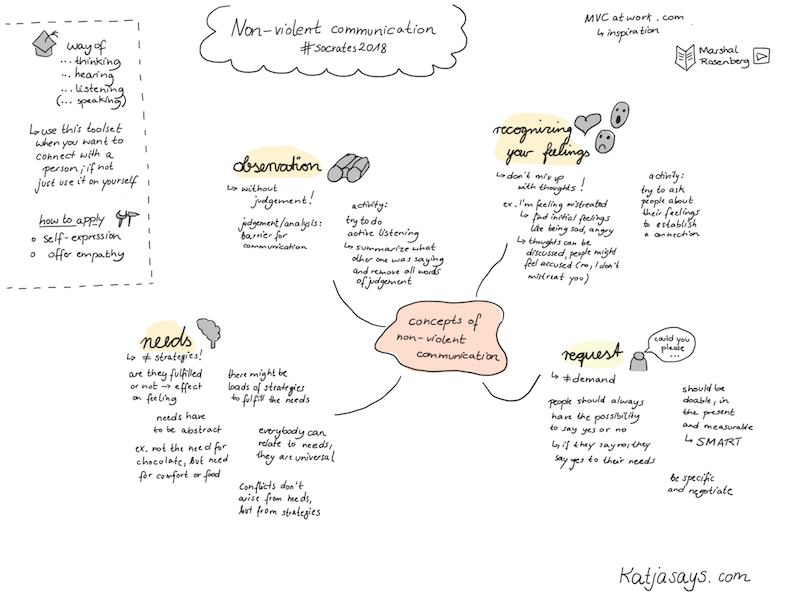 Non-violent communication
#socrates2018
MVCatwork.com
↳ inspiration
Marshal
Rosenberg
way of
... thinking
... hearing
... listening
(... speaking)
↳ use this toolset
when you want to
connect with a
person; if not
just use it on yourself
how to apply
o self-expression
o offer empathy
observation
↳ without
judgement!
judgement/analysis:
barrier for
communication
activity:
try to do
active listening
↳ summarize what
other one was saying
and remove all words
of judgement
recognizing
your feelings
↳ don't mix up
with thoughts!
ex. I'm feeling mistreated
↳ find initial feelings
like being sad, angry
↳ thoughts can be
discussed, people might
feel accused (no, I don't
mistreat you)
activity:
try to ask
people about
their feelings
to establish
a connection
concepts of
non-violent
communication
needs
↳ ≠ strategies!
are they fulfilled
or not → effect
on feeling
needs have
to be abstract
ex. not the need for
chocolate, but need
for comfort or food
there might be
loads of strategies
to fulfill the needs
everybody can
relate to needs,
they are universal
Conflicts don't
arise from needs,
but from strategies
request
could you
please
...
↳ ≠demand
people should always
have the possibility
to say yes or no
↳ if they say no, they
say yes to their needs
should be
doable, in
the present
and measurable
↳ SMART
be specific
and negotiate
Katjasays.com